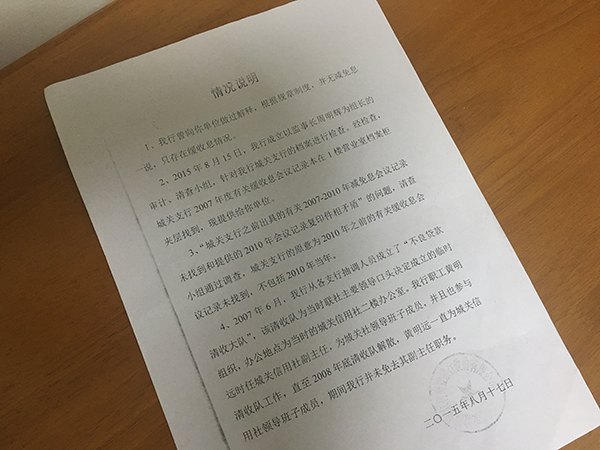 情况说明
1、我行曾向你单位做过解释，根据规章制度，并无减免息
一说，只存在缓收息情况。
2、2015年8月15日，我行成立以监事长周明辉为组长的
审计、清查小组，针对我行城关支行的档案进行检查。经检查，
城关支行2007年度有关缓收息会议记录本在1楼营业室档案柜
夹层找到，现提供给你单位。
3、“城关支行之前出具的有关2007-2010年减免息会议记录
未找到和提供的2010年会议记录复印件相矛盾”的问题，清查
小组通过调查，城关支行的原意为2010年之前的有关缓收息会
议记录未找到，不包括2010年当年。
4、2007年6月，我行从各支行抽调人员成立了“不良贷款
清收大队”，该清收队为当时联社主要领导口头决定成立的临时
组织，办公地点为当时的城关信用社二楼办公室。我行职工黄明
远时任城关信用社副主任，为城关社领导班子成员，并且也参与
清收队工作，直至2008年底清收队解散，黄明远一直为城关信
用社领导班子成员，期间我行并未免去其副主任职务。
二〇一五年八月十七日